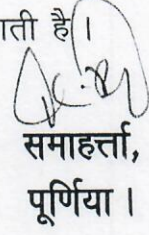 ाती है।
समाहर्त्ता,
पूर्णिया।